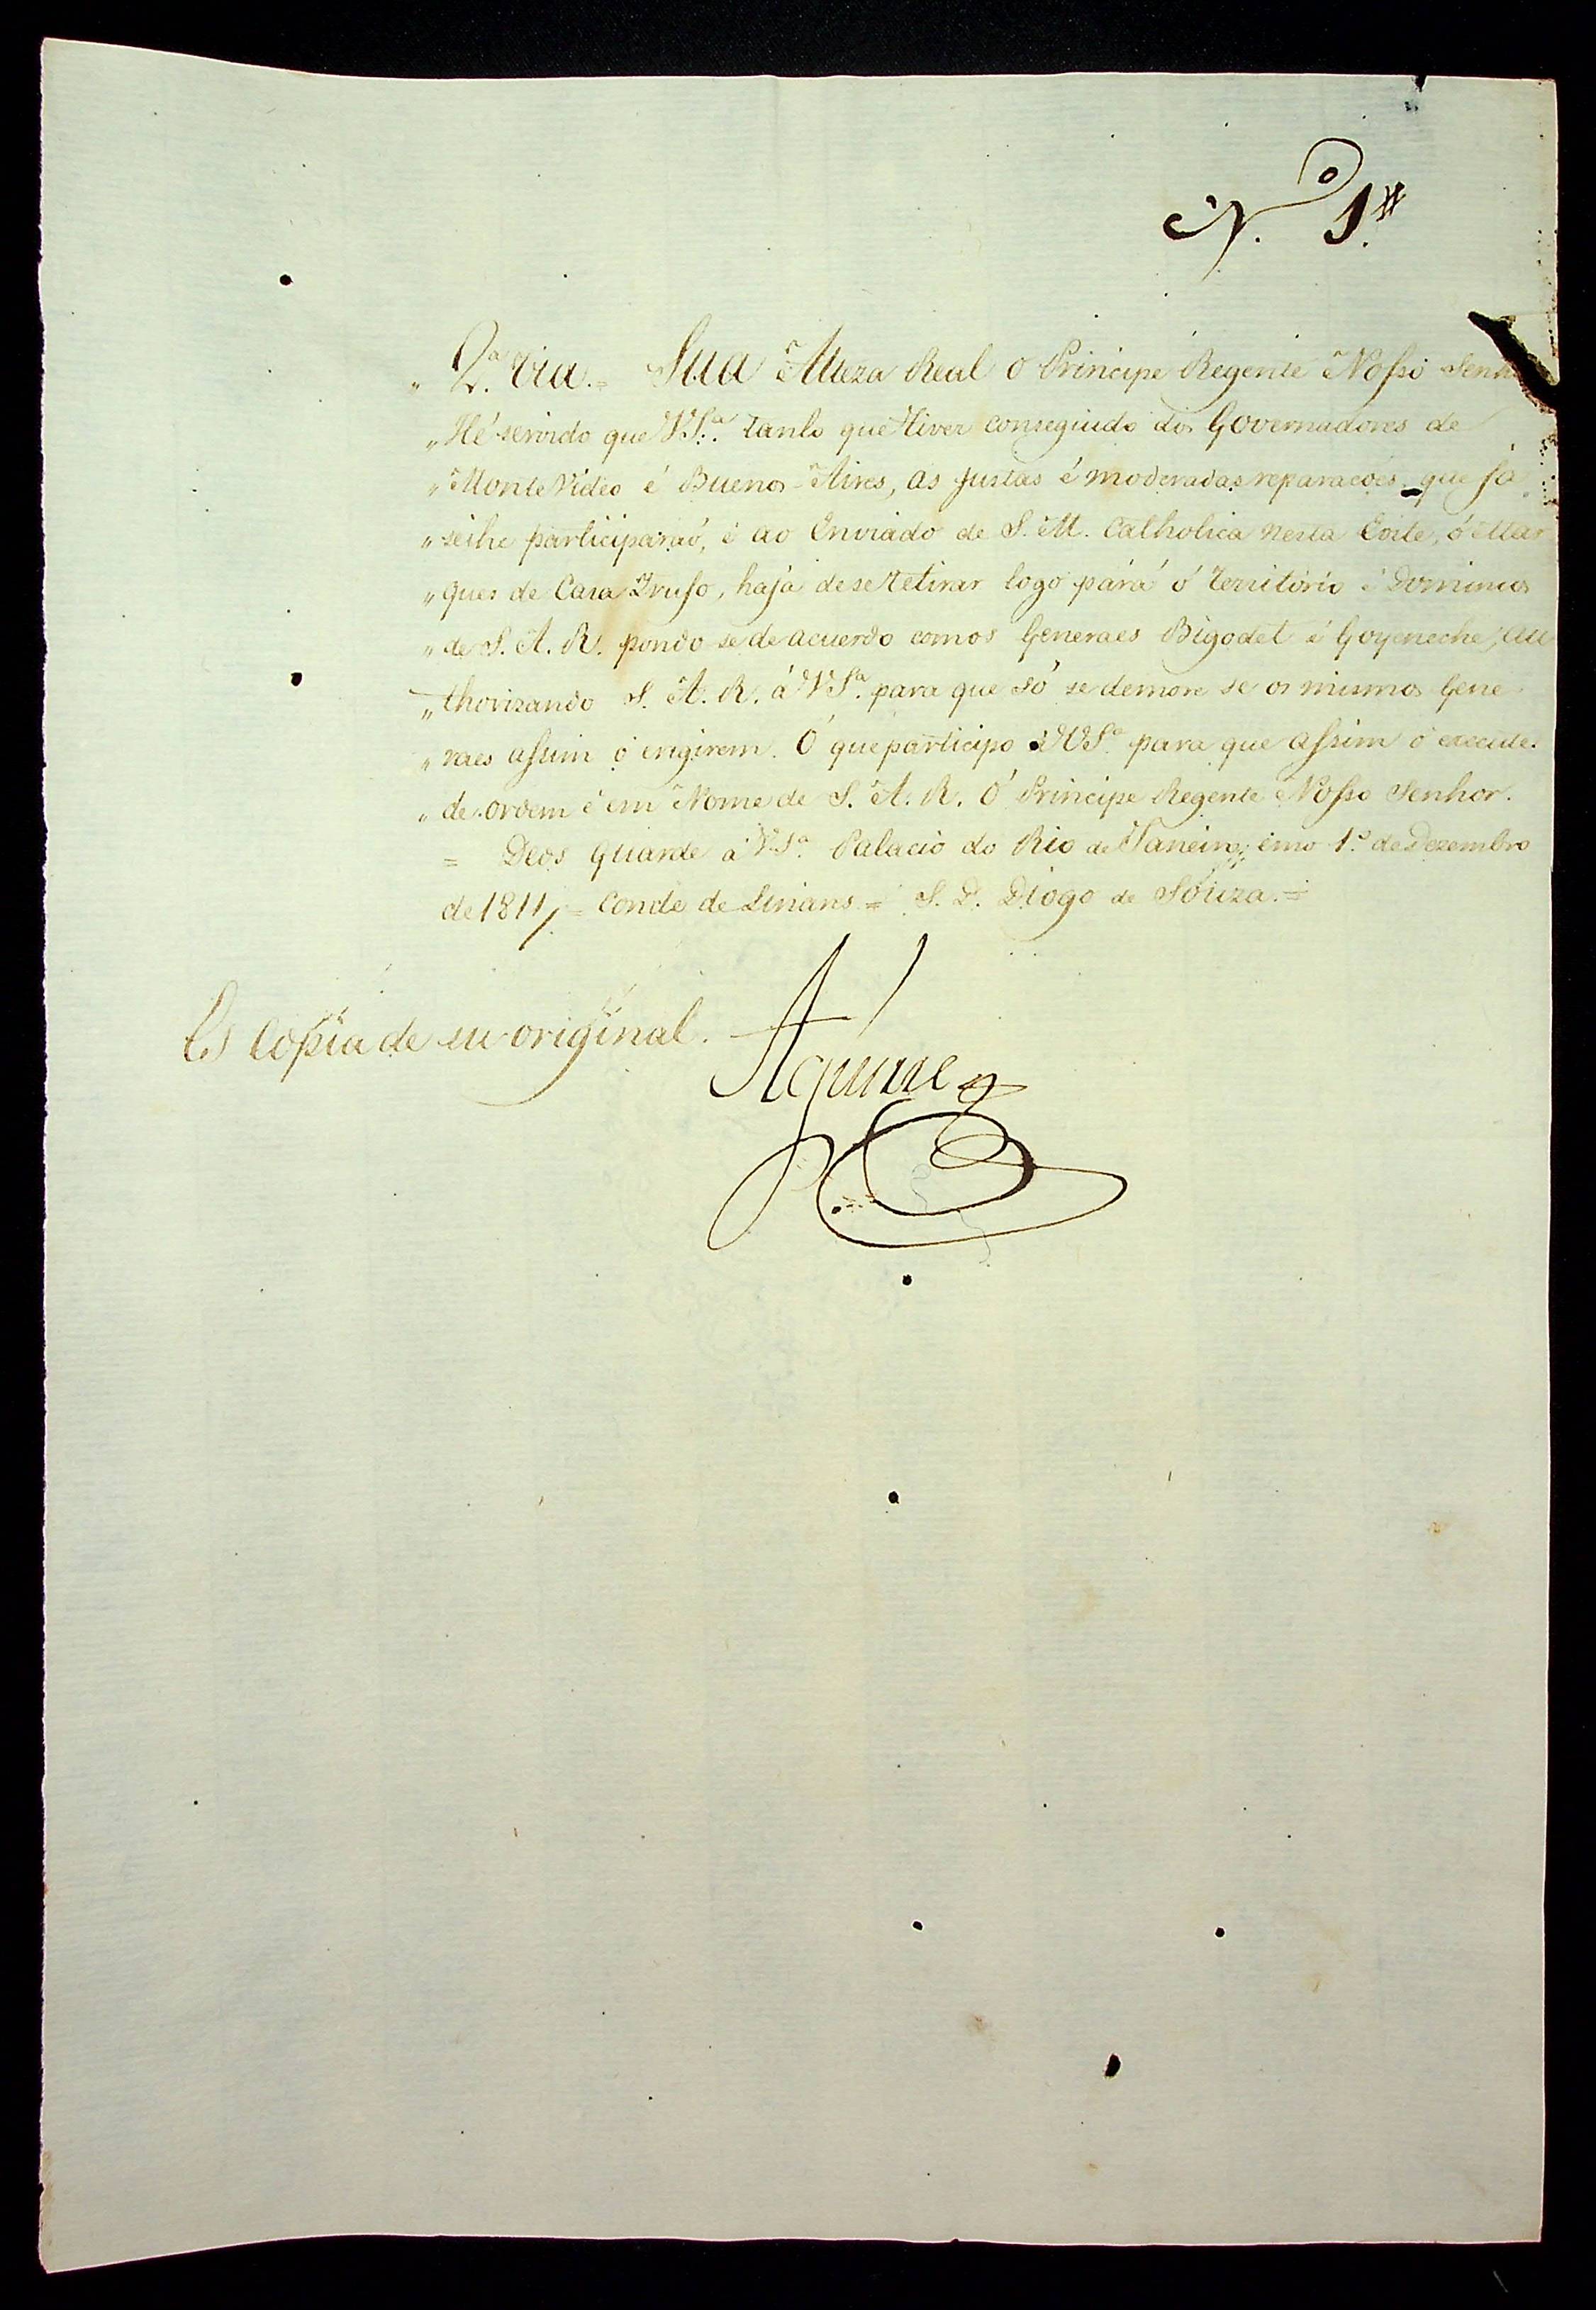 N.º 1.
„ 2.ª Via. = Sua Alteza Real o Principe Regente Nosso Senh
„ Hé servido que V.S.ª tanto que tiver conseguido dos Governadores de
„ Monte Vídeo é Buenos-Aires, as justas é moderadas reparacoés que já
„ selhe participaraó, é ao Enviado de S. M. Catholica nesta Corte, ó Mar
„ ques de Casa Irujo, haja dese retirar logo pará ó territorio é Dominios
„ de S. A. R. pondo se de acuerdo comos Generaes Bigodet é Goyeneche, au
„ thorizando S. A. R. á V.S.ª para que só se demore se os mismos Gene
„ raes assim ó exigirem. Ó que participo á V.S.ª para que assim ó execute
„ de ordem é em Nome de S. A. R. Ó Principe Regente Nosso Senhor.
= Deos Guarde á V.S.ª Palacio do Rio de Janeiro, emo 1.º de Dezembro
de 1811, = Conde de Linans = S. D. Diogo de Souza. =
Es copia de su original.